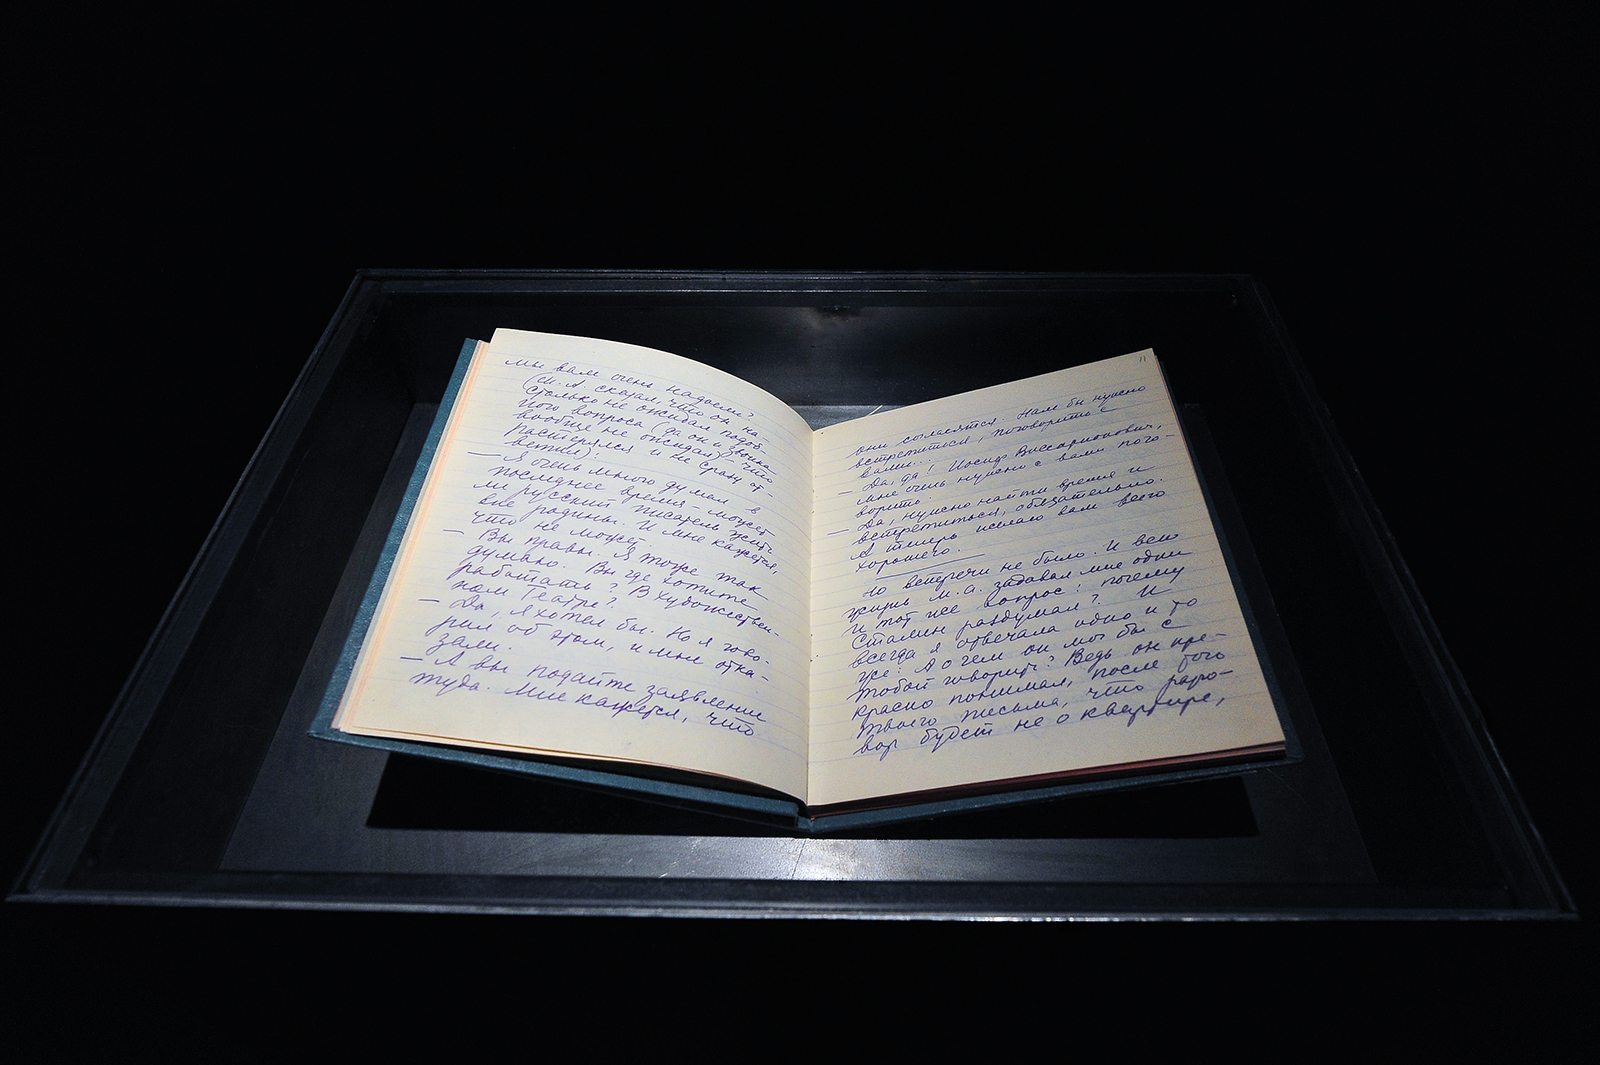 мы вам очень надоели?
(М. А. сказал, что он на-
столько не ожидал подоб-
ного вопроса (да он и звонка
вообще не ожидал) – что
растерялся и не сразу от-
ветил):
– Я очень много думал в
последнее время – может
ли русский писатель жить
вне родины. И мне кажется,
что не может.
– Вы правы. Я тоже так
думаю. Вы где хотите
работать? В Художествен-
ном Театре?
– Да, я хотел бы. Но я гово-
рил об этом, и мне отка-
зали.
– А вы подайте заявление
туда. Мне кажется, что
11
они согласятся. Нам бы нужно
встретиться, поговорить с
вами...
– Да, да! Иосиф Виссарионович,
мне очень нужно с вами пого-
ворить.
– Да, нужно найти время и
встретиться, обязательно.
А теперь желаю вам всего
хорошего.
Но встречи не было. И всю
жизнь М. А. задавал мне один
и тот же вопрос: почему
Сталин раздумал? И
всегда я отвечала одно и то
же: А о чем он мог бы с
тобой говорить? Ведь он пре-
красно понимал, после того
твоего письма, что разго-
вор будет не о квартире,